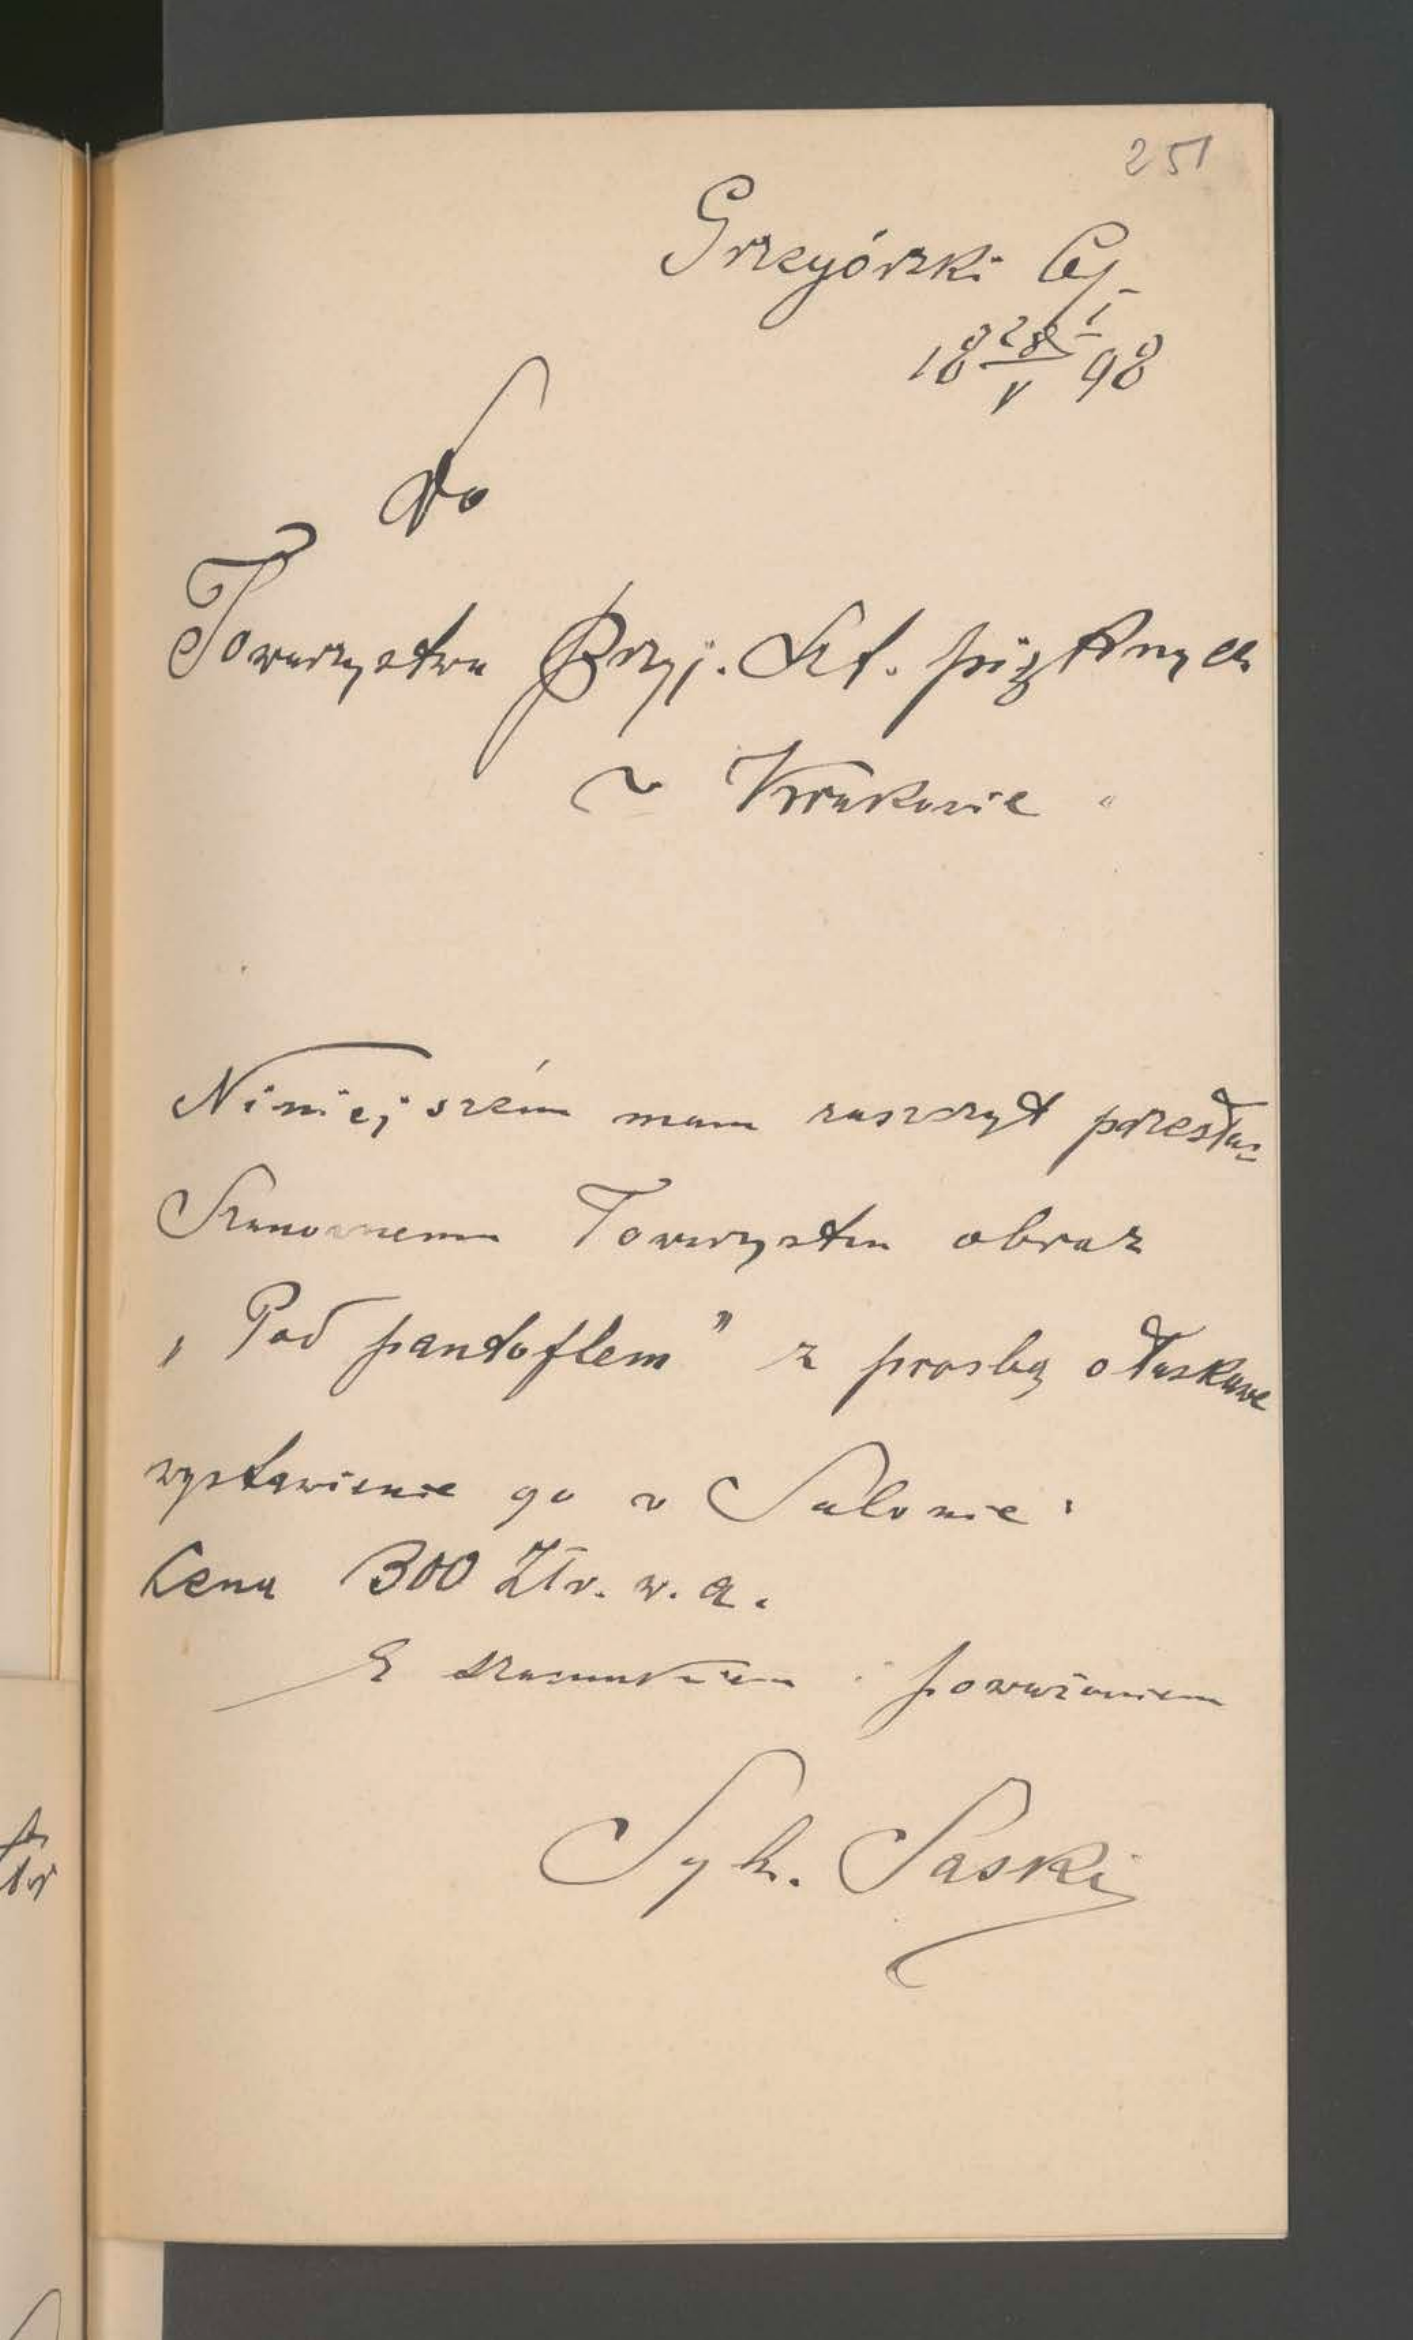 251
Grzegórzki
18 28/V 98
Do
Towarzystwa Przyj. Szt. pięknych
w Krakowie
Niniejszém mam zaszczyt przesłac
Szanownemu Towarzystwu obraz
„Pod pantoflem" z prosbą o łaskawe
wystawienie go w Salonie.
Cena 300 Złr. w. a.
Z szacunkiem i poważaniem
Syl. Saski